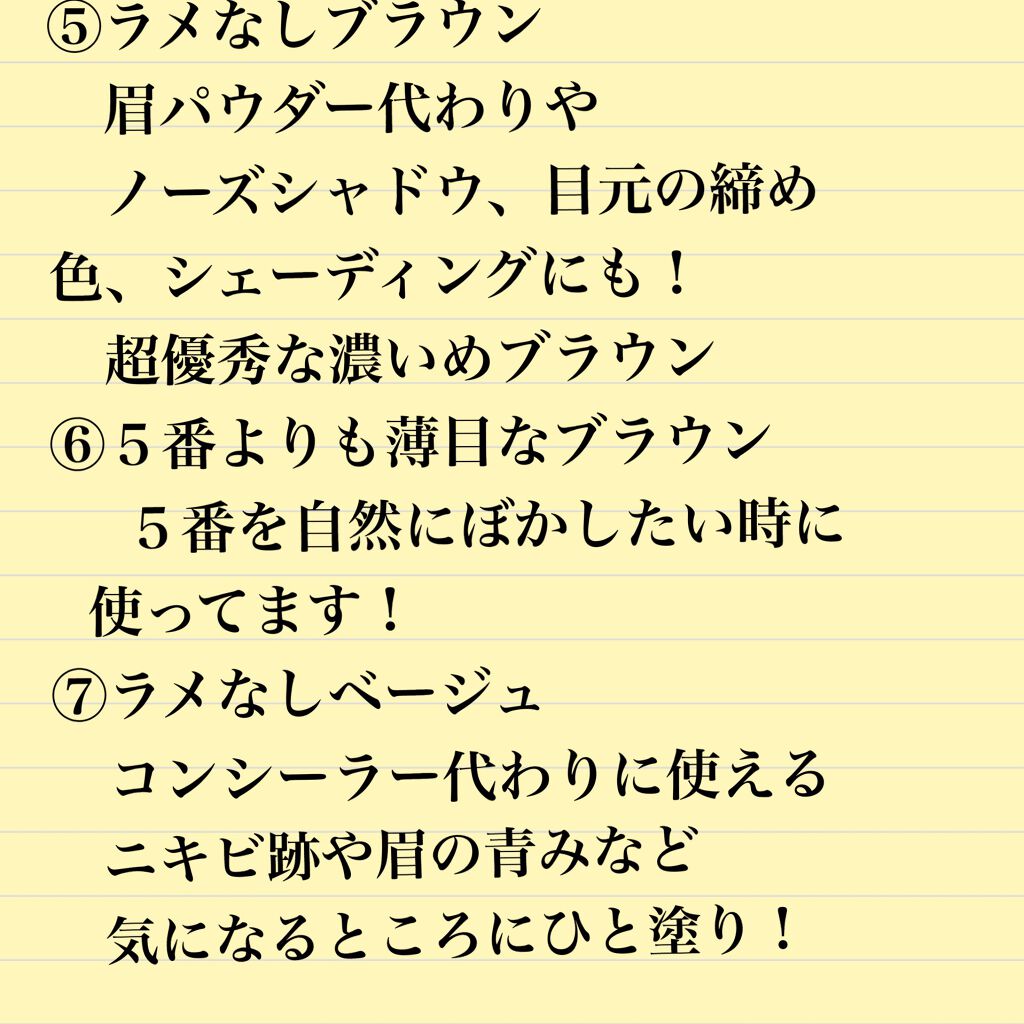 ⑤ラメなしブラウン
眉パウダー代わりや
ノーズシャドウ、目元の締め
色、シェーディングにも！
超優秀な濃いめブラウン
⑥５番よりも薄目なブラウン
５番を自然にぼかしたい時に
使ってます！
⑦ラメなしベージュ
コンシーラー代わりに使える
ニキビ跡や眉の青みなど
気になるところにひと塗り！